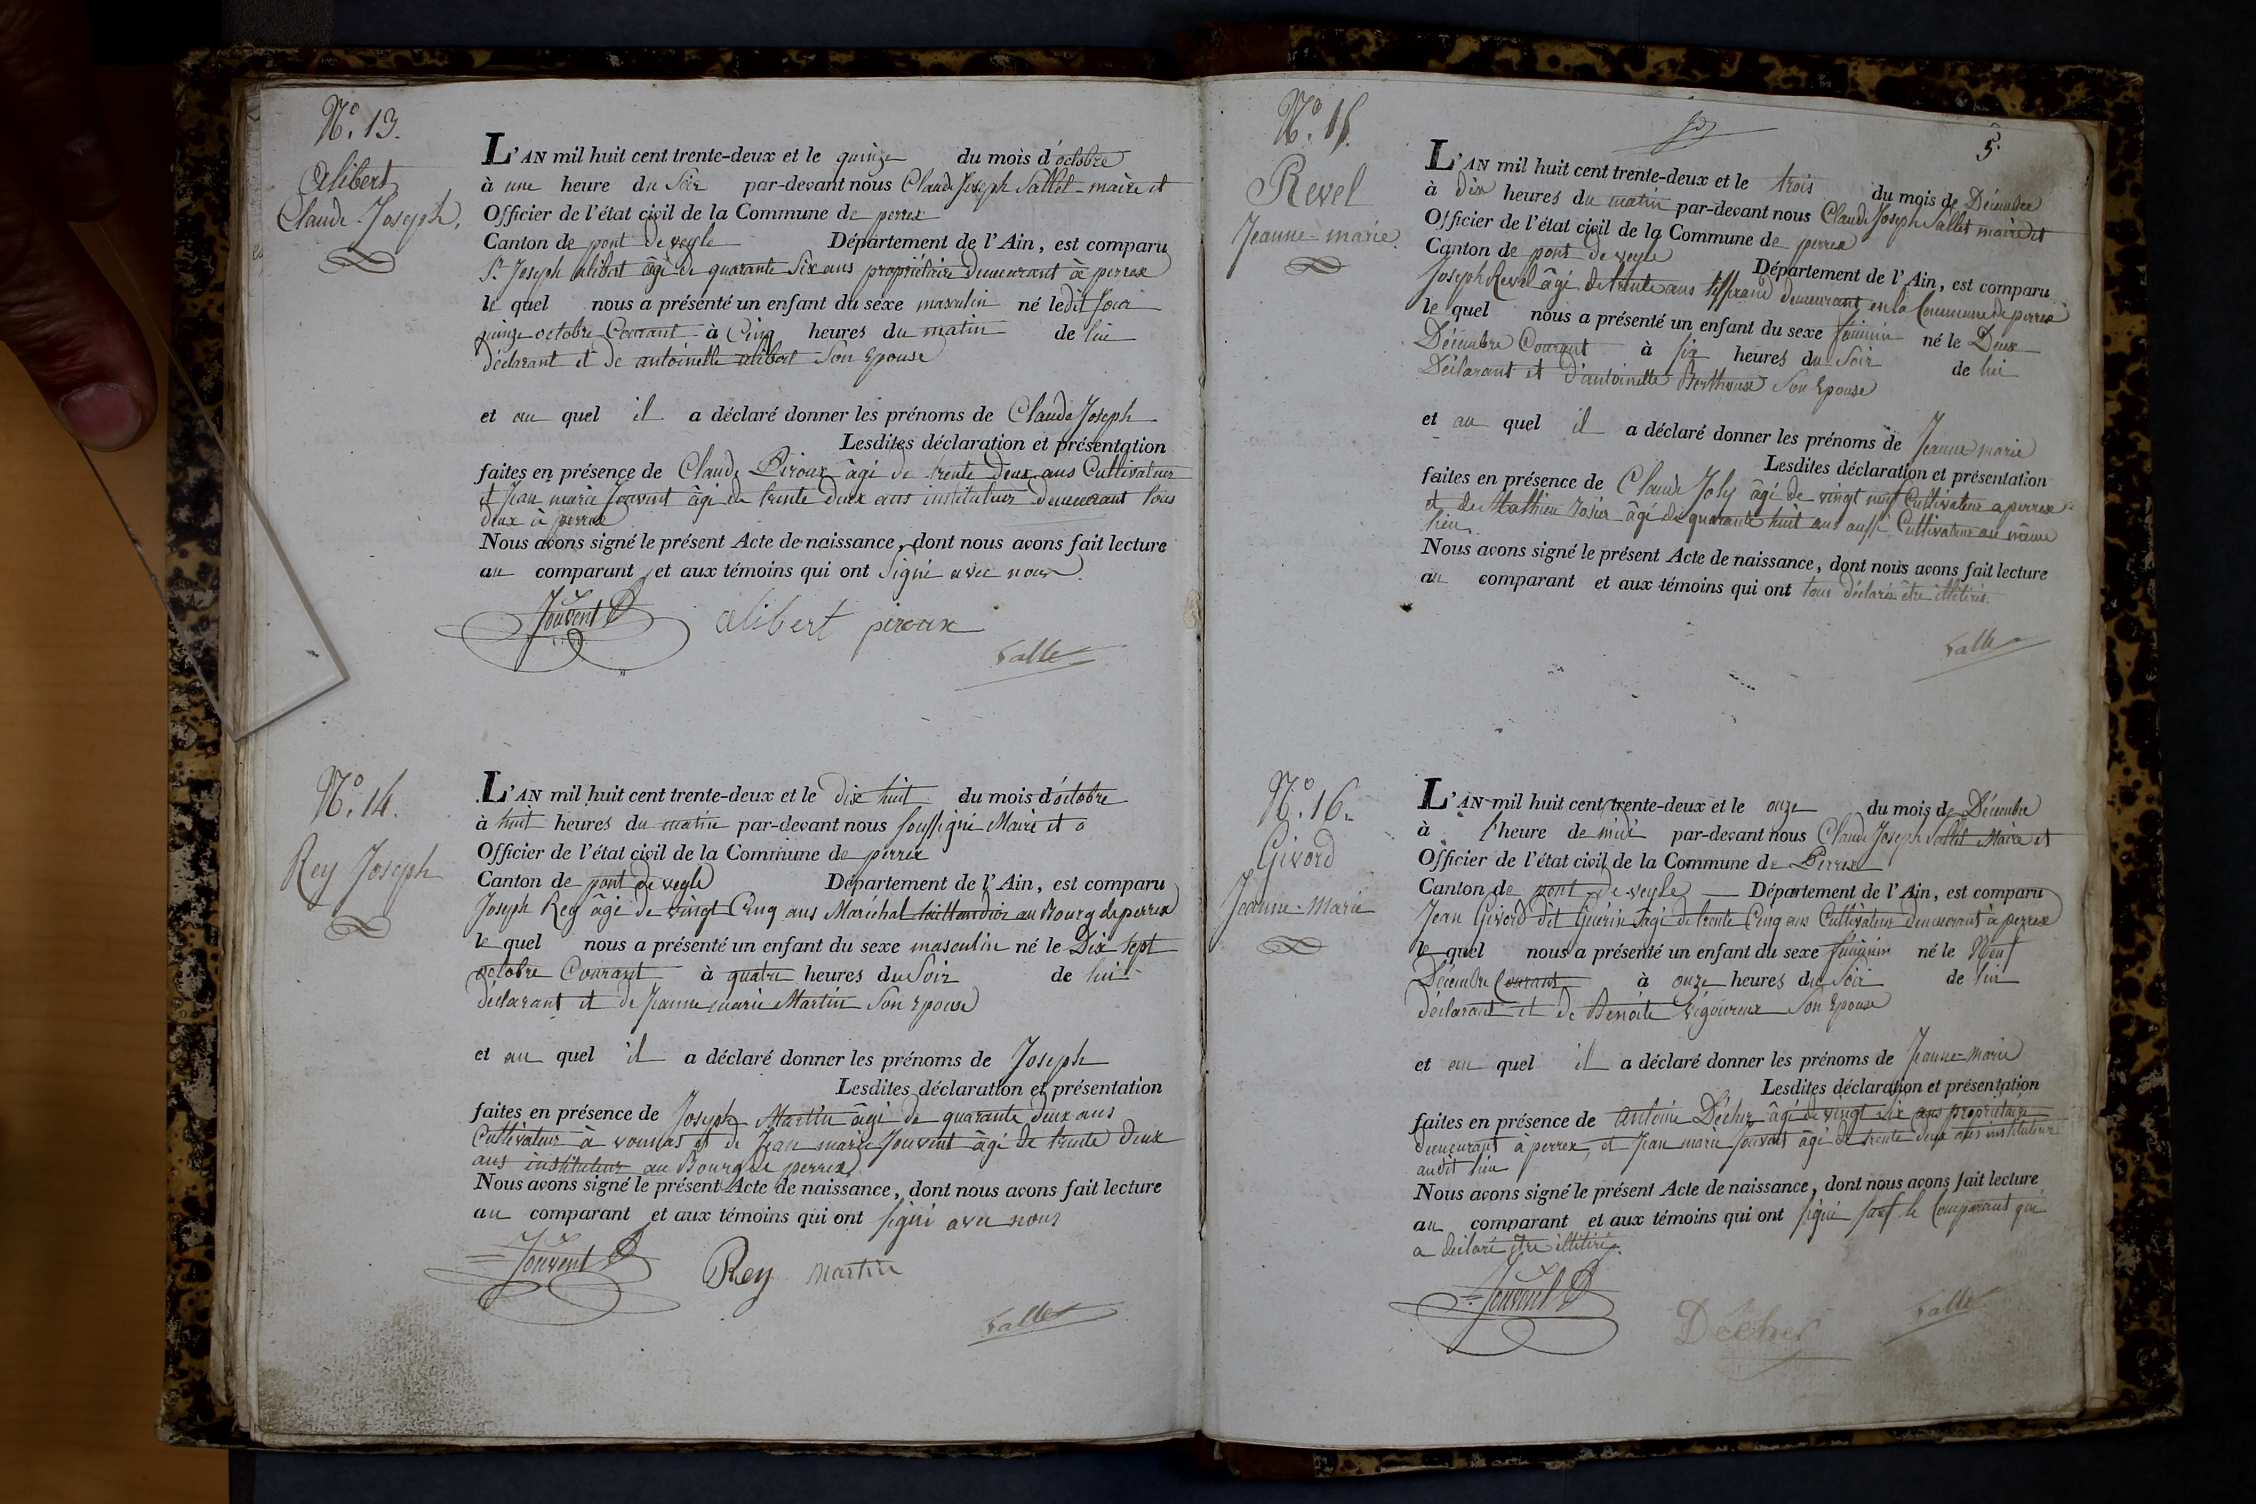 N.º 13.
Alibert
Claude Joseph.
L'AN mil huit cent trente-deux et le quinze du mois d'octobre
à une heure du Soir par-devant nous Claude Joseph Sallet maire et
Officier de l'état civil de la Commune de perrex
Canton de pont de veyle Département de l'Ain, est comparu
Sr. Joseph alibert âgé de quarante Six ans propriétaire demeurant à perrex
le quel nous a présenté un enfant du sexe masculin né ledit Jour
quinze octobre Courant à Cinq heures du matin de lui
déclarant et de antoinette alibert Son Epouse
et au quel il a déclaré donner les prénoms de Claude Joseph
Lesdites déclaration et présentation
faites en présence de Claude Piroux âgé de trente deux ans Cultivateur
et Jean marie Jouvent âgé de trente deux ans instituteur demeurant tous
deux à perrex
Nous avons signé le présent Acte de naissance, dont nous avons fait lecture
au comparant et aux témoins qui ont Signé avec nous.
Jouvent alibert piroux
Sallet
N.º 14.
Rey Joseph
L'AN mil huit cent trente-deux et le dix huit du mois d'octobre
à huit heures du matin par-devant nous Soussigné Maire et
Officier de l'état civil de la Commune de perrex
Canton de pont de veyle Département de l'Ain, est comparu
Joseph Rey âgé de vingt Cinq ans Maréchal taillandier au Bourg de perrex
le quel nous a présenté un enfant du sexe masculin né le Dix Sept
octobre Courant à quatre heures du Soir de lui
déclarant et de Jeanne marie Martin Son Epouse
et au quel il a déclaré donner les prénoms de Joseph
Lesdites déclaration et présentation
faites en présence de Joseph Martin âgé de quarante deux ans
Cultivateur à vonnas et de Jean marie Jouvent âgé de trente deux
ans instituteur au Bourg de perrex
Nous avons signé le présent Acte de naissance, dont nous avons fait lecture
au comparant et aux témoins qui ont Signé avec nous
Jouvent Rey Martin
Sallet
5
N.º 15.
Revel
Jeanne-marie.
L'AN mil huit cent trente-deux et le trois du mois de Décembre
à dix heures du matin par-devant nous Claude Joseph Sallet maire et
Officier de l'état civil de la Commune de perrex
Canton de pont de veyle Département de l'Ain, est comparu
Joseph Revel âgé de trente ans tisserand demeurant en la Commune de perrex
le quel nous a présenté un enfant du sexe féminin né le Deux
Décembre Courant à six heures du Soir de lui
Déclarant et d'antoinette Berthoux Son Epouse
et au quel il a déclaré donner les prénoms de Jeanne marie
Lesdites déclaration et présentation
faites en présence de Claude Joly âgé de vingt neuf Cultivateur a perrex
et de Mathieu Rosier âgé de quarante huit ans aussi Cultivateur au même
lieu
Nous avons signé le présent Acte de naissance, dont nous avons fait lecture
au comparant et aux témoins qui ont tous déclaré être illitérés.
Sallet
N.º 16.
Givord
Jeanne-Marie
L'AN mil huit cent trente-deux et le onze du mois de Décembre
à l'heure de midi par-devant nous Claude Joseph Sallet Maire et
Officier de l'état civil de la Commune de Perrex
Canton de pont de veyle Département de l'Ain, est comparu
Jean Givord dit Guérin âgé de trente Cinq ans Cultivateur demeurant à perrex
le quel nous a présenté un enfant du sexe féminin né le Neuf
Décembre Courant, à onze heures du Soir de lui
déclarant et de Benoite Vigoureux Son Epouse
et au quel il a déclaré donner les prénoms de Jeanne-Marie
Lesdites déclaration et présentation
faites en présence de antoine Décher âgé de vingt Six ans propriétaire
demeurant à perrex, et Jean marie Jouvent âgé de trente deux ans instituteur
audit lieu
Nous avons signé le présent Acte de naissance, dont nous avons fait lecture
au comparant et aux témoins qui ont signé sauf le Comparant qui
a déclaré être illitéré.
Jouvent Décher Sallet